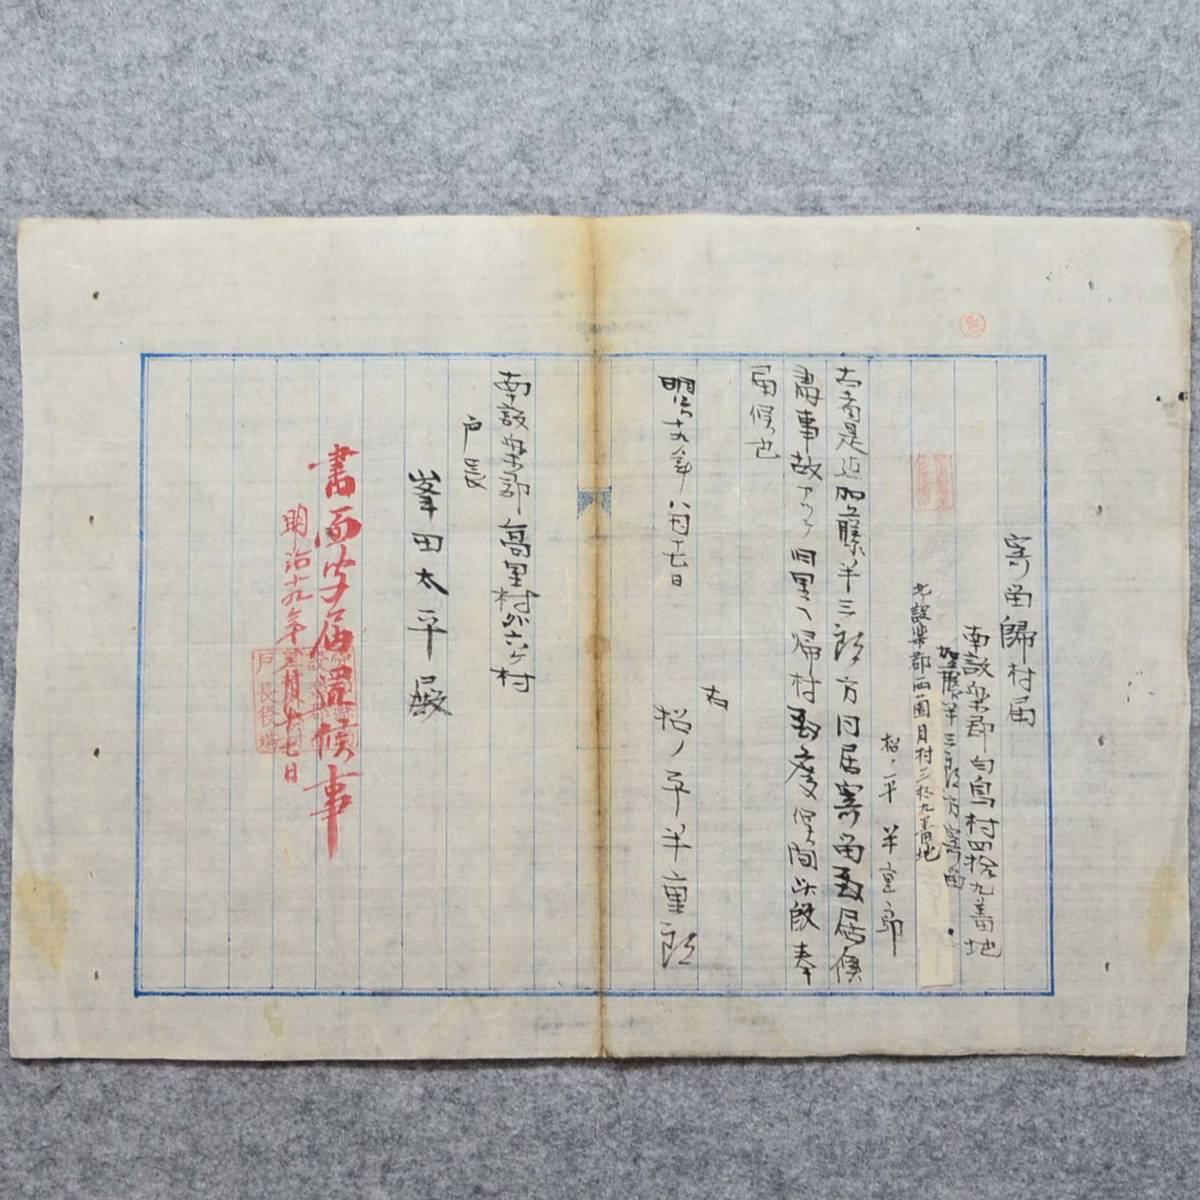 寄留歸村届
南設楽郡白鳥村四拾九番地
加藤半三郎方寄留
北設楽郡西薗目村三拾九番地
松ノ平半重郎
右者是迠加藤半三郎方同居寄留致居候
處事故アツテ旧里ヘ帰村致度候間此段奉
届候也
右
明治十九年八月十七日 松ノ平半重郎
南設楽郡高里村外六ヶ村
戸長
峯田太平殿
書面字届置候事
明治十九年八月十七日
戸長役場